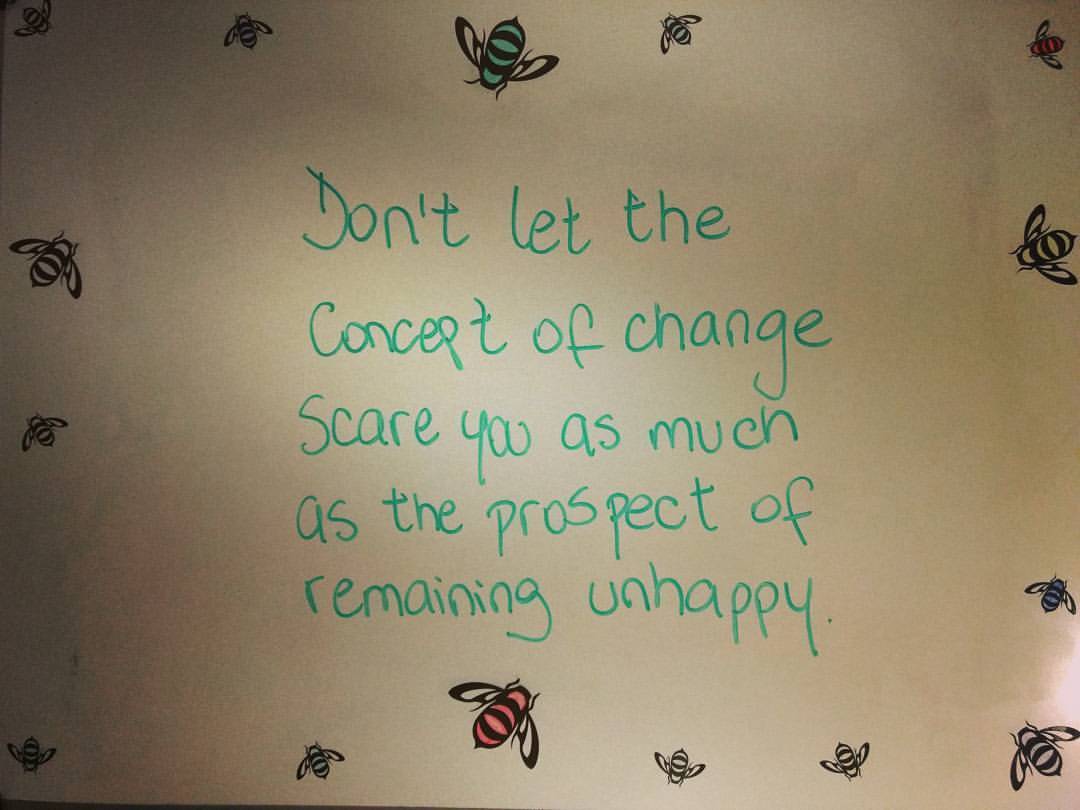 Don't let the
Concept of change
Scare you as much
as the prospect of
remaining unhappy.